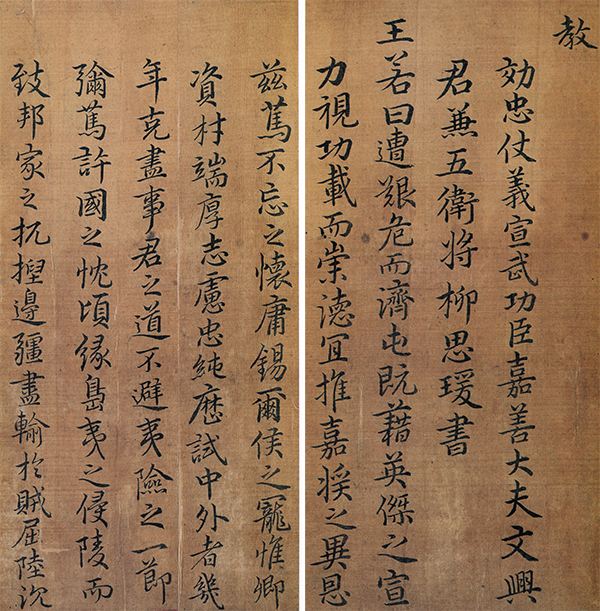 教
効忠仗義宣武功臣嘉善大夫文興
君兼五衛將柳思瑗書
王若曰遭艱危而濟屯既藉英傑之宣
力視功載而崇德宜推嘉奬之異恩
茲篤不忘之懷庸錫爾侯之寵惟卿
資材端厚志慮忠純歷試中外者幾
年克盡事君之道不避夷險之一節
彌篤許國之忱頃緣島夷之侵陵而
致邦家之杌揑邊疆盡輸於賊屈陸沉